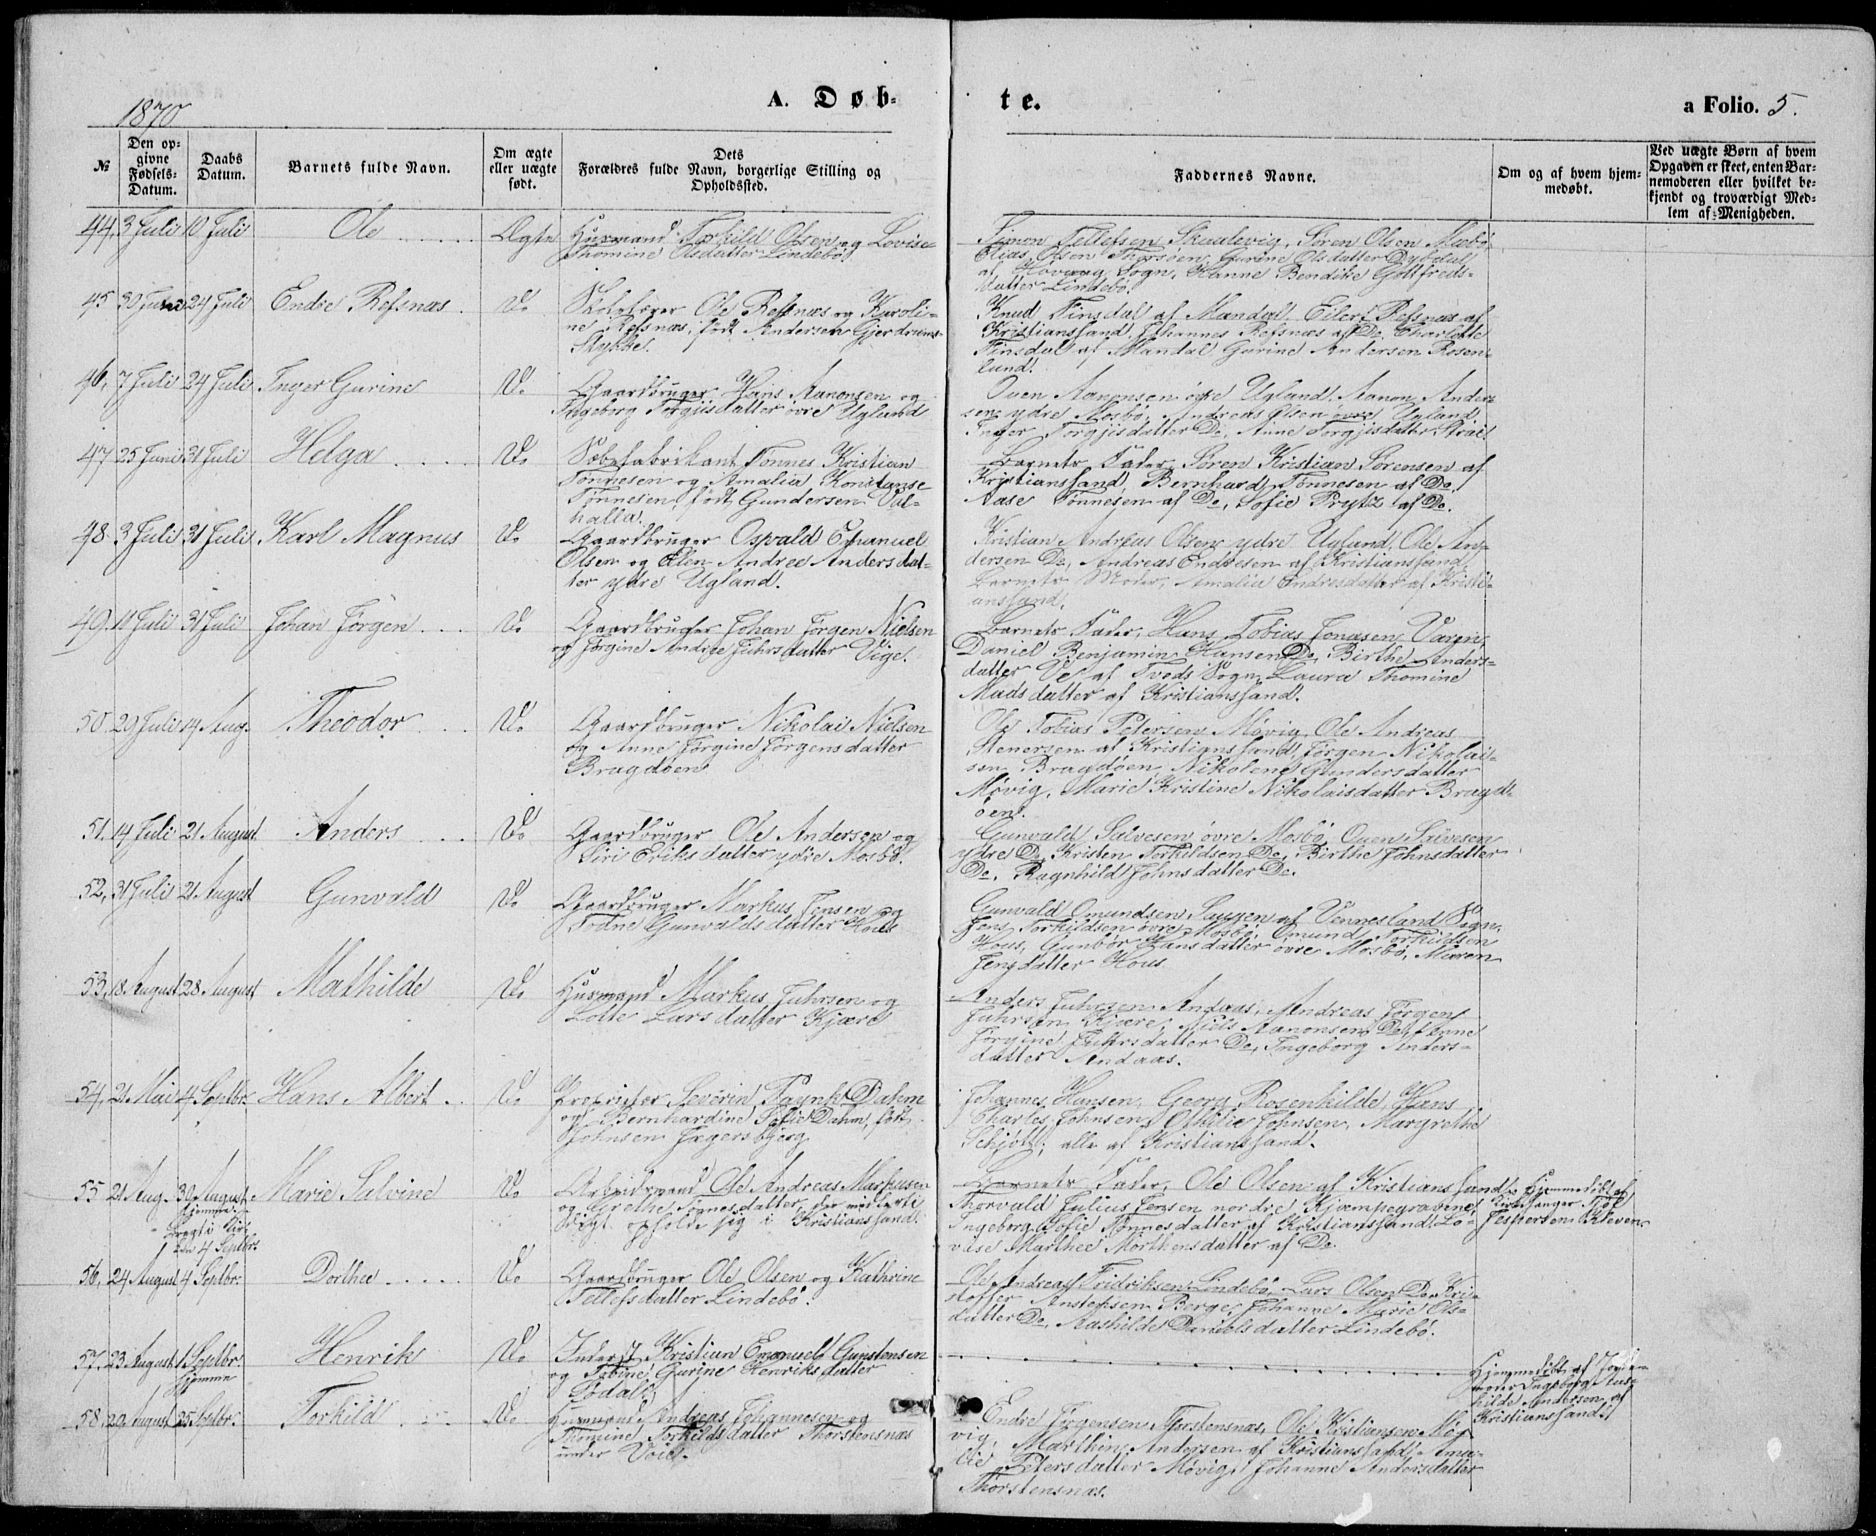 1870
A. Døb-
te.
a Folio. 5.
№
Den op-
givne
Fødsels-
Datum.
Daabs
Datum.
Barnets fulde Navn.
Om ægte
eller uægte
født.
Dets
Forældres fulde Navn, borgerlige Stilling og
Opholdssted.
Faddernes Navne.
Om og af hvem hjem-
medøbt.
Ved uægte Børn af hvem
Opgaven er skeet, enten Bar-
nemoderen eller hvilket be-
kjendt og troværdigt Med-
lem af Menigheden.
44, 3 Juli 10 Juli Ole Ægte
Husmand Torkild Olsen og Lovise
Thomine Olsdatter Lindebø
Simon Tellefsen Skualevig, Søren Olsen Mæbø
Elias Olsen Thorsøen, Gurine Olsdatter Dybdal
af Høvaag Sogn, Hanne Bendike Gottfreds-
datter Lindebø.
45 30 Juni 24 Juli Endre Refsnæs Do
Ole Refsnæs og Karoli-
ne Refsnæs, født Andersen Gjerdrums-
Stykke.
Knud Finsdal af Mandal, Eilert Refsnæs af
Kristianssand, Johannes Refsnæs af Do Charlotte
Finsdal af Mandal Gurine Andersen Rosen-
lund.
46, 7 Juli 24 Juli Inger Gurine Do
Gaardbruger Hans Aanonsen og
Ingeborg Torgjisdatter øvre Ugland
Oven Aanonsen øvre Ugland, Aanon Anders-
sen ydre Mosbø, Andreas Olsen øvre Ugland
Inger Torgjisdatter Do, Anne Torgjisdatter Straie
47 25 Juni 31 Juli Helga Do
Sæbefabrikant Tønnes Kristian
Tønnesen og Amalia Konstanse
Tønnesen, født Gundersen Val-
halla.
Barnets Fader, Søren Kristian Sørensen af
Kristianssand, Bernhard Tønnesen af Do,
Aase Tønnesen af Do, Sofie Prytz af Do.
48 3 Juli 31 Juli Karl Magnus Do
Gaardbruger Osvald Emanuel
Olsen og Elen Andrea Andersdat-
ter ydre Ugland.
Kristian Andreas Olsen ydre Ugland, Ole An-
dersen Do, Andreas Endresen af Kristianssand
Barnets Moder, Amalia Endresdatter af Kristi-
anssand.
49. 11 Juli 31 Juli Johan Jørgen Do
Gaardbruger Johan Jørgen Nielsen
og Jørgine Andrea Juhrsdatter Vige.
Barnets Fader, Hans Tobias Jonasen Vigen
Daniel Benjamin Hansen Do, Birthe Anders-
datter Ve af Tveds Sogn, Laura Thomine
Madsdatter af Kristianssand.
50 20 Juli 14 Aug. Theodor Do
Gaardbruger Nikolai Nielsen
og Anne Jørgine Jørgensdatter
Bragdøen
Ole Tobias Petersen Møvig, Ole Andreas
Stenersen af Kristianssand, Jørgen Nikolai-
sen Bragdøen, Nikolene Gundersdatter
Møvig, Marie Kristine Nikolaisdatter Bragd-
øen.
51. 14 Juli 21 August Anders Do
Gaardbruger Ole Andersen og
Siri Eriksdatter ydre Mosbø.
Gunvald Salvesen øvre Mosbø, Oven Salvesen
ydre Do, Kristen Torkildsen Do, Birthe Johnsdatter
Do, Ragnhild Johnsdatter Do.
52, 31 Juli 21 August Gunvald Do
Gaardbruger Markus Jensen og
Todne Gunvaldsdatter Hous
Gunvald Omundsen Saugen af Vennesland Sogn,
Jens Torkildsen øvre Mosbø, Omund Torkildsen
Hous, Gunbør Hansdatter øvre Mosbø, Maren
Jensdatter Hous
53, 18 August 28 August Mathilde Do
Husmand Markus Juhrsen og
Lotte Larsdatter Kjære
Anders Juhrsen Andaas, Andreas Jørgen
Juhrsen Kjære, Niels Aanonsen Do, Anne
Jørgine Juhrsdatter Do, Ingeborg Anders-
datter Andaas.
54, 21 Mai 4 Septbr. Hans Albert Do
Proprietær Severin Dahm
og Bernhardine Sofie Dahm, født
Johnsen Jægersbjerg
Johannes Hansen, Georg Rosenkilde, Hans
Charles Johnsen, Othilie Johnsen, Margrethe
Schjøtt; alle af Kristianssand.
55 21 Aug. 30 August Marie Salvine Do
hjemme
Bragt i Kir-
den 4 Septbr.
Arbeidsmand Ole Andreas Markusen
og Grethe Tønnesdatter,
opholde sig i Kristianssand.
Barnets Fader, Ole Olsen af Kristianssand
Thorvald Julius Jensen nordre Kjempegravine,
Ingeborg Sofie Tønnesdatter af Kristianssand Lo-
vise Marthea Morthensdatter af Do
Hjemmedøbt af
Kirkesanger
Jespersen Kleven
56, 24 August 4 Septbr. Dorthea Do
Gaardbruger Ole Olsen og Kathrine
Tellefsdatter Lindebø.
Ole Andreas Fridriksen Lindebø, Lars Olsen Do, Kri-
stoffer Anstensen Berge, Johanne Marie Ols-
datter Do, Mathilde Danielsdatter Lindebø.
57, 23 August 1 Septbr. Henrik Do
hjemme
Inderst Kristian Emanuel Gunstensen
og Tobine Gurine Henriksdatter
Fodal
Hjemmedøbt af Jorde-
moder Ingeborg Mat-
hilde Andersen af
Kristianssand.
58, 20 August 25 Septbr. Torkild Do
Husmand Andreas Johannesen og
Thomine Torkildsdatter Thorstensnæs
under Voie.
Endre Jørgensen Thorstensnæs, Ole Kristiansen Mø-
vig, Marthin Andersen af Kristianssand, Ama-
lie Petersdatter Møvig, Johanne Andersdatter
Thorstensnæs.